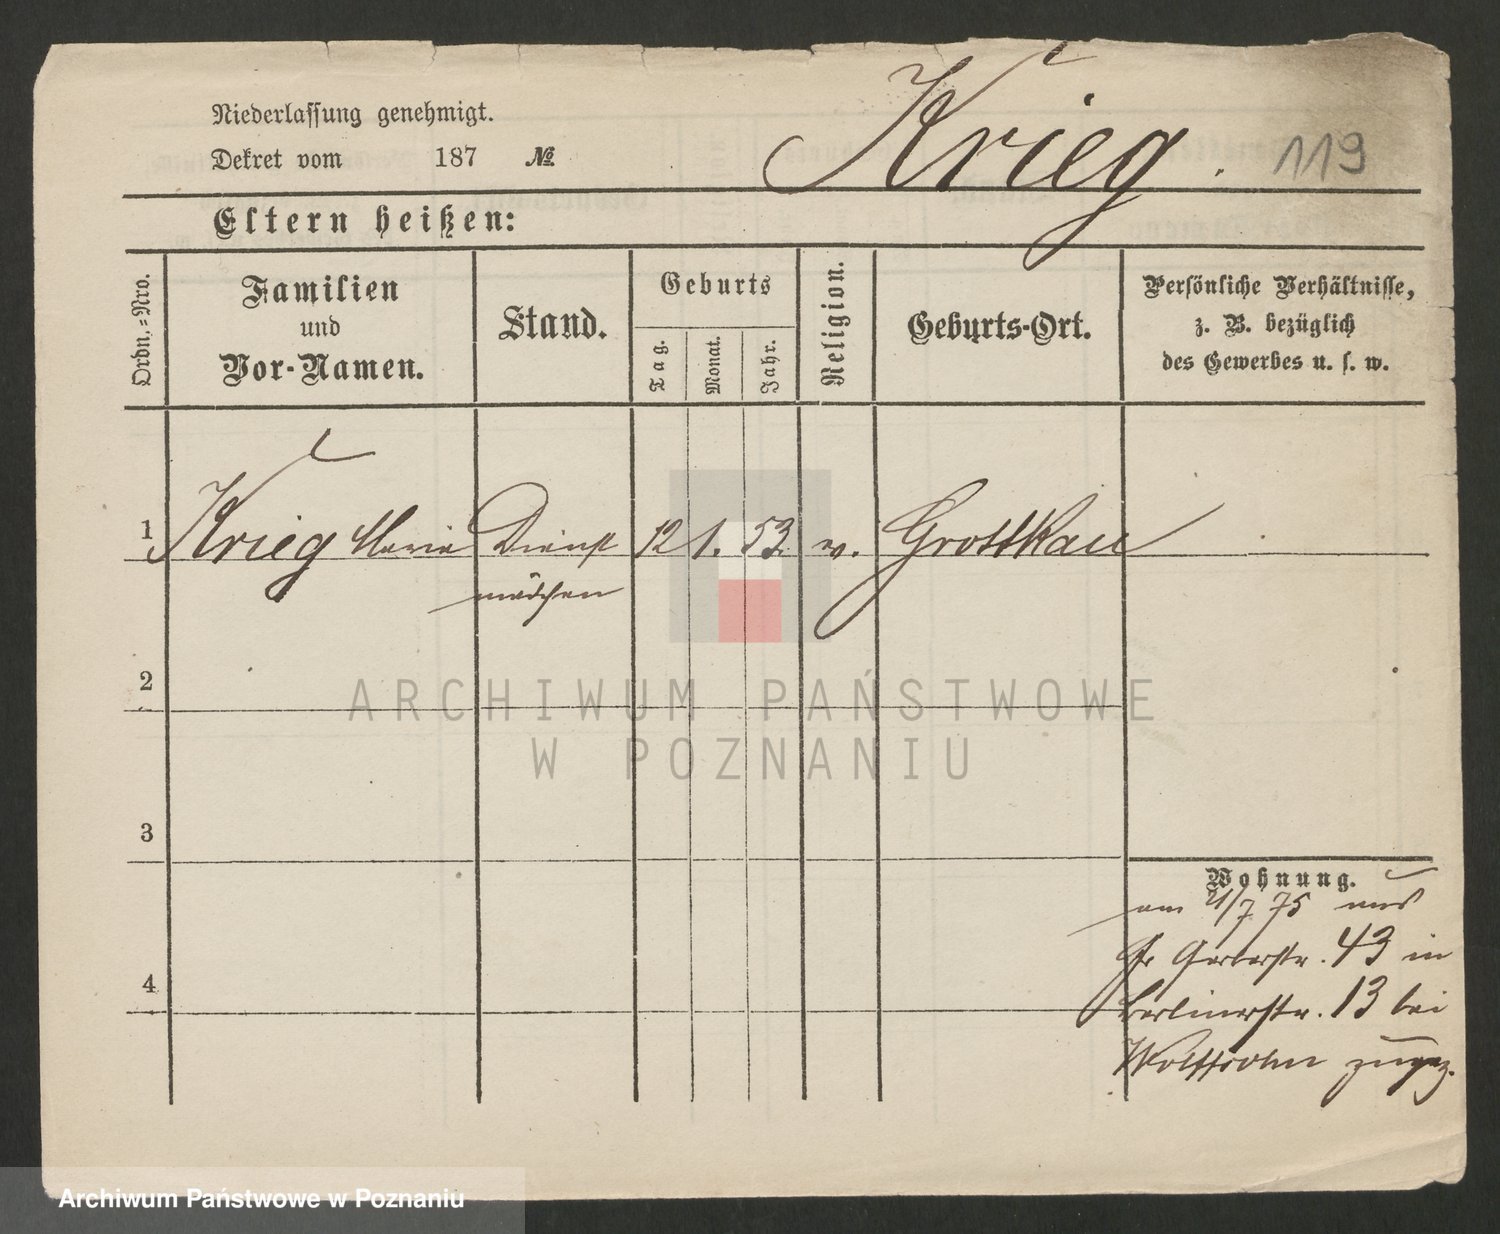 Niederlassung genehmigt.
Dekret vom 187 №
Krieg. 119
Eltern heißen:
Ordn.-Nro.
Familien
und
Vor-Namen.
Stand.
Geburts
Tag.
Monat.
Jahr.
Religion.
Geburts-Ort.
Persönliche Verhältnisse,
z. B. bezüglich
des Gewerbes u. s. w.
1 Krieg Marie Dienst 12 1. 53. Grottkau
mädchen
2
ARCHIWUM PAŃSTWOWE
W POZNANIU
3
Wohnung.
am 21/7 75 aus
Gr Gerberstr. 43 in
4
Berlinerstr. 13 bei
Wolffsohn zugez.
Archiwum Państwowe w Poznaniu